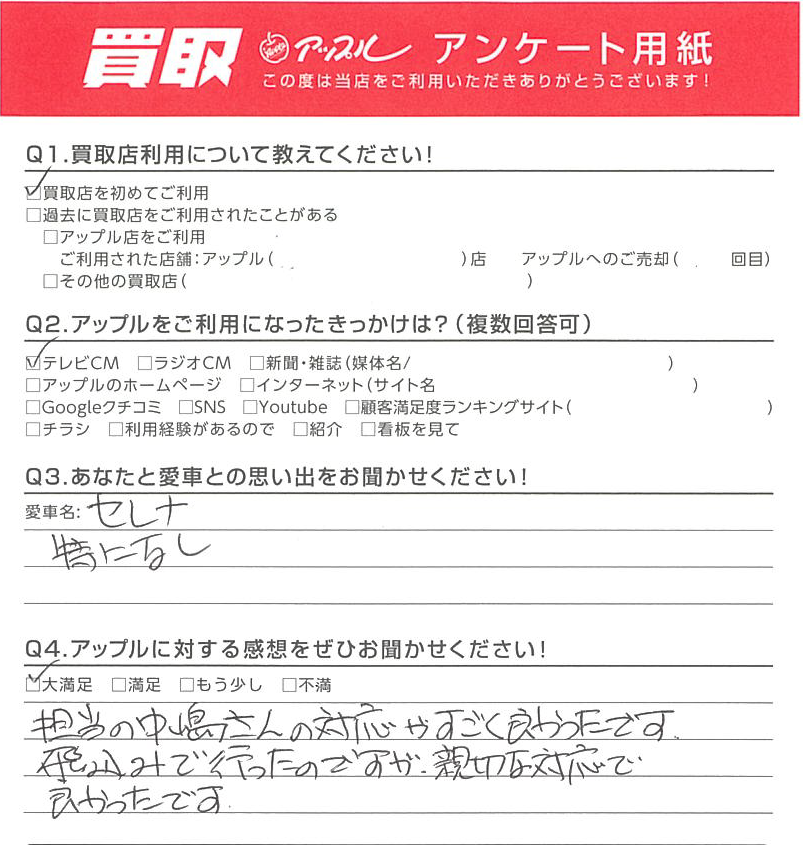 買取 アップル アンケート用紙
この度は当店をご利用いただきありがとうございます!
Q1.買取店利用について教えてください!
☑買取店を初めてご利用
□過去に買取店をご利用されたことがある
□アップル店をご利用
ご利用された店舗:アップル( )店 アップルへのご売却( 回目)
□その他の買取店( )
Q2.アップルをご利用になったきっかけは?(複数回答可)
☑テレビCM □ラジオCM □新聞・雑誌(媒体名/ )
□アップルのホームページ □インターネット(サイト名 )
□Googleクチコミ □SNS □Youtube □顧客満足度ランキングサイト( )
□チラシ □利用経験があるので □紹介 □看板を見て
Q3.あなたと愛車との思い出をお聞かせください!
愛車名: セレナ
特になし
Q4.アップルに対する感想をぜひお聞かせください!
☑大満足 □満足 □もう少し □不満
担当の中嶋さんの対応がすごく良かったです.
飛込みで行ったのですが、親切な対応で
良かったです.